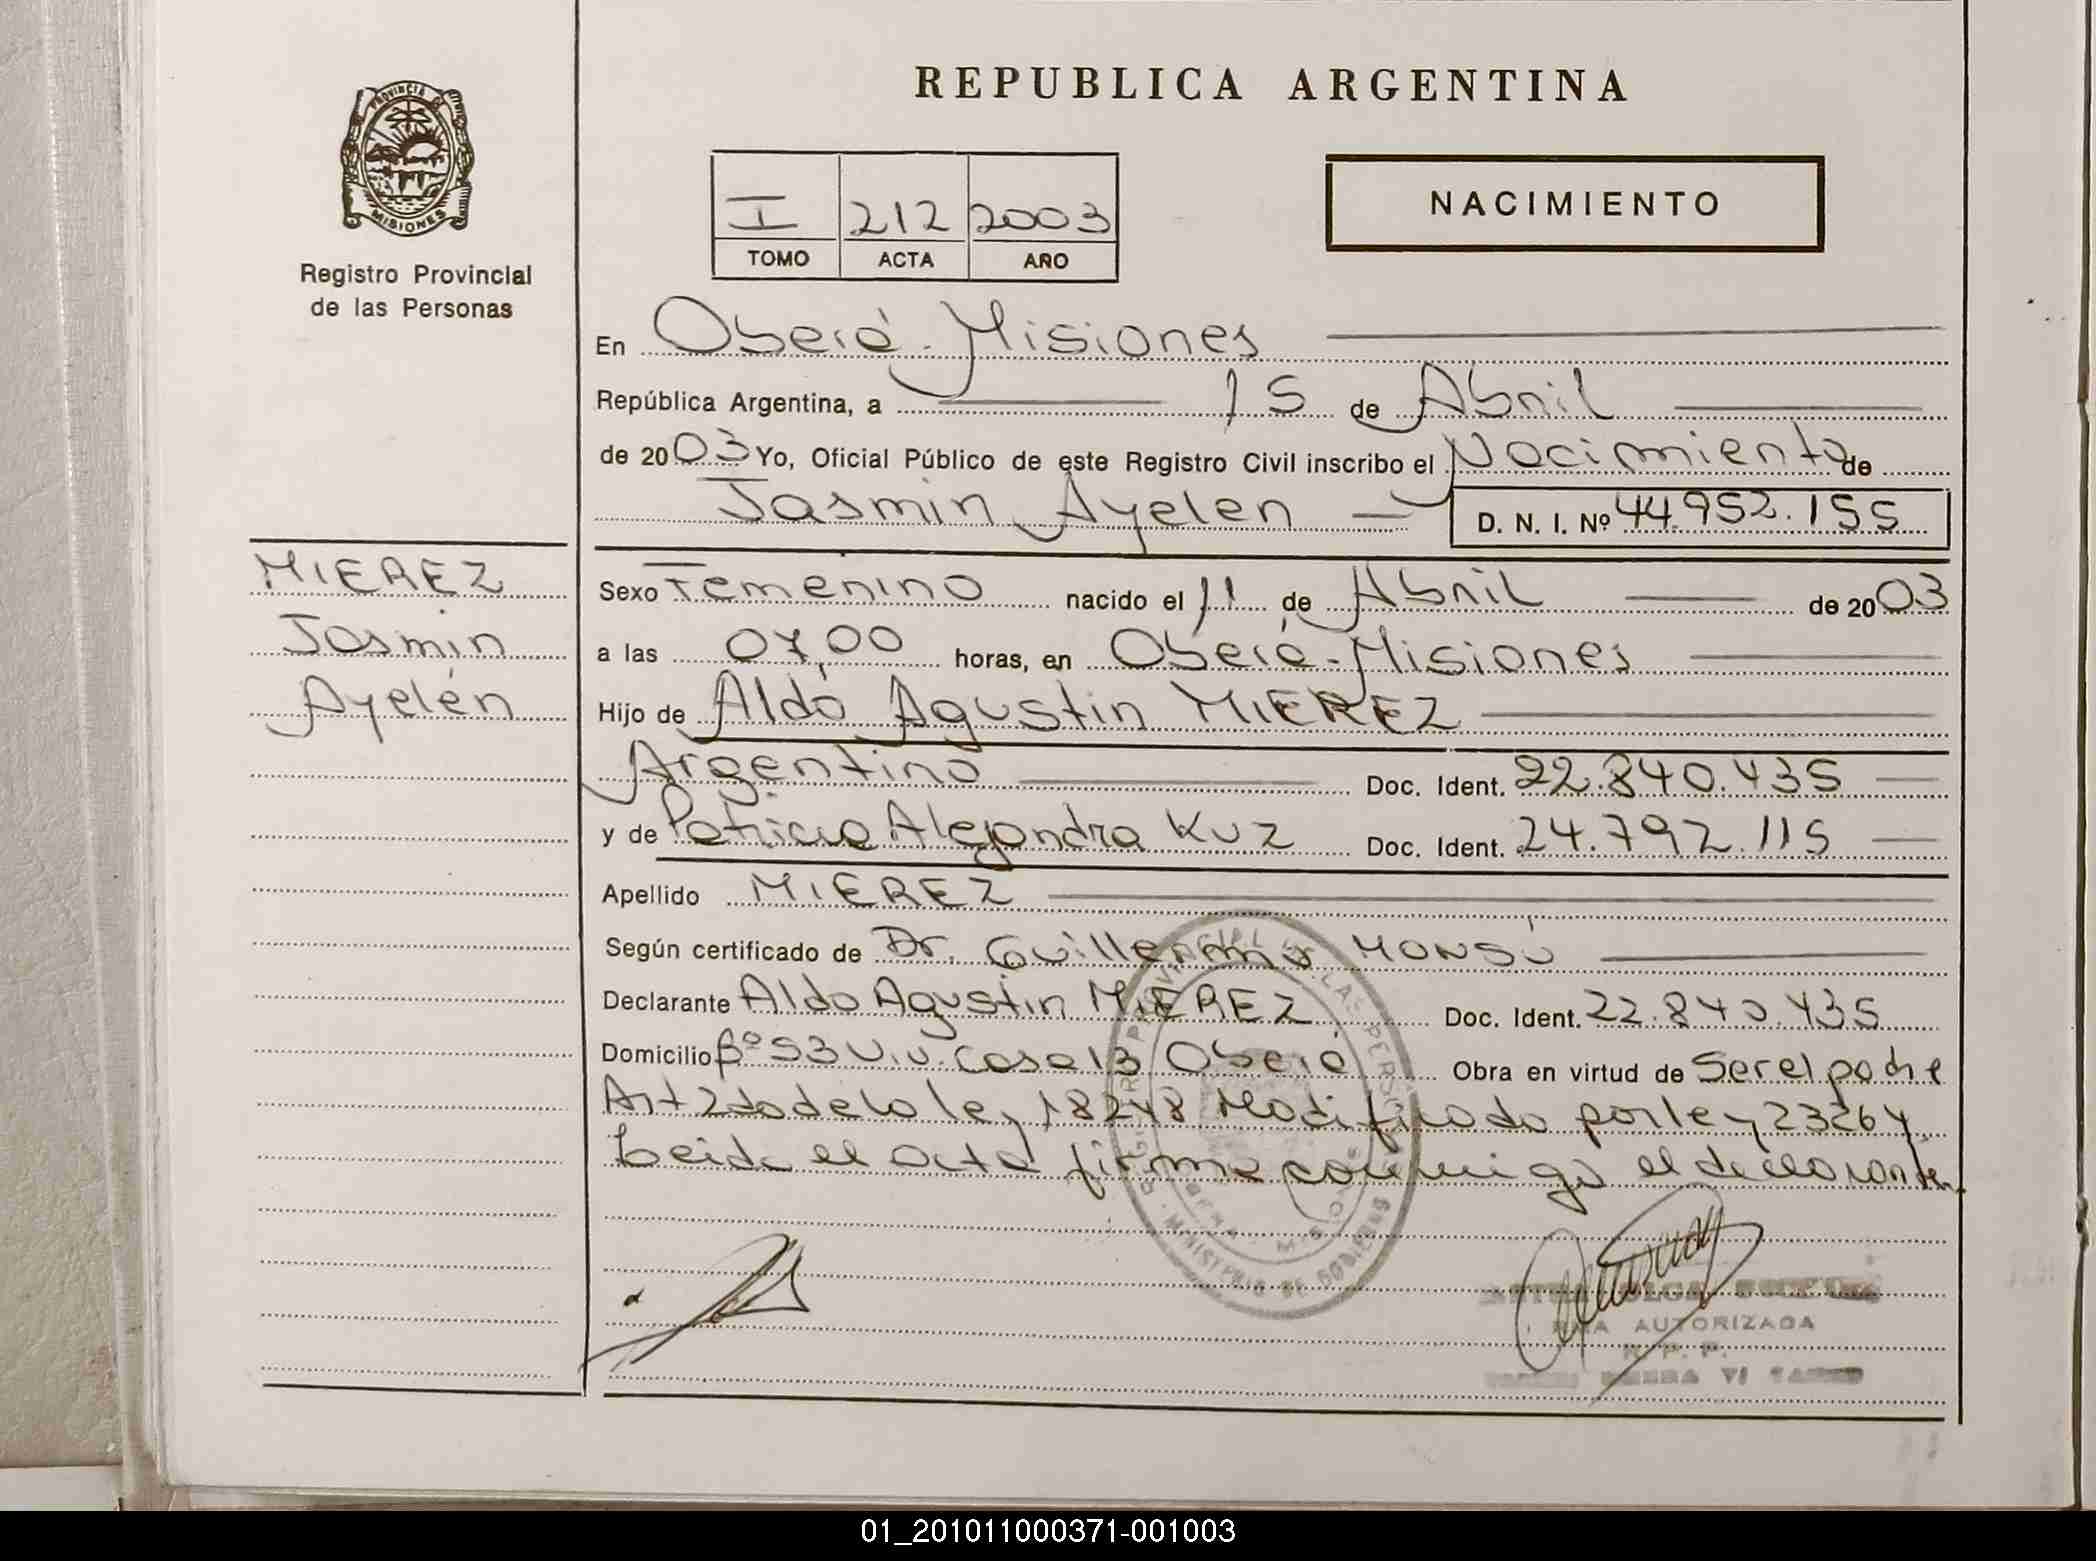 REPUBLICA ARGENTINA
PROVINCIA DE
MISIONES
Registro Provincial
de las Personas
I 212 2003
TOMO ACTA AÑO
NACIMIENTO
En Oberá - Misiones
República Argentina, a 15 de Abril
de 2003 Yo, Oficial Público de este Registro Civil inscribo el Nacimiento de
Jasmin Ayelen D. N. I. Nº 44.952.155
MIEREZ
Jasmin
Ayelén
Sexo Femenino nacido el 11 de Abril de 2003
a las 07,00 horas, en Oberá - Misiones
Hijo de Aldo Agustin MIEREZ
Argentino Doc. Ident. 22.840.435
y de Patricia Alejandra KUZ Doc. Ident. 24.792.115
Apellido MIEREZ
Según certificado de Dr. Guillermo MONSÚ
Declarante Aldo Agustin MIEREZ Doc. Ident. 22.840.435
Domicilio Bº 53 Viv. Casa 13 Oberá Obra en virtud de Ser el padre
Art 2do de la ley 18248 Modificado por ley 23264
Leida el acta firma conmigo el declarante
MINISTERIO DE GOBIERNO
AUTORIZADA
R. P. P.
01_201011000371-001003